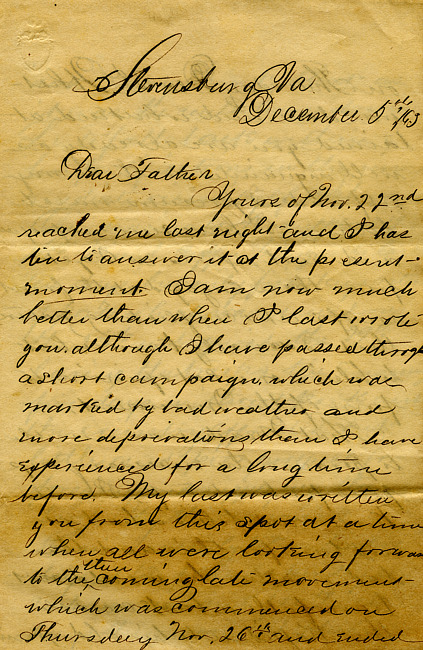 Stevensburg Va.
December 5th /63
Dear Father
Yours of Nov. 22nd
reached me last night and I has
ten to answer it at the present
moment. I am now much
better than when I last wrote
you, although I have passed through
a short campaign, which was
marked by bad weather and
more deprivations than I have
experienced for a long time
before. My last was written
you from this spot at a time
when all were looking forward
to the then coming late movement
which was commenced on
Thursday Nov. 26th and ended